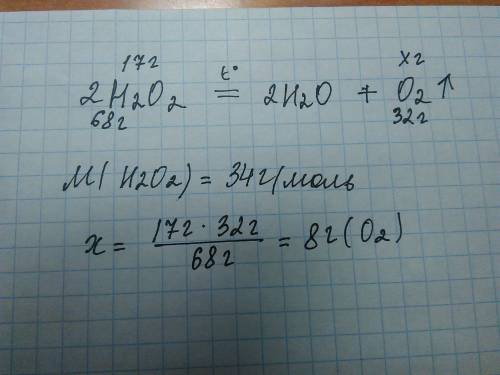 17г xг
2H₂O₂ =^t° 2H₂O + O₂↑
68г 32г
M(H₂O₂) = 34г/моль
x = 17г · 32г / 68г = 8г (O₂)